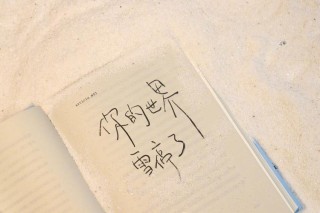 你的世界
雪停了